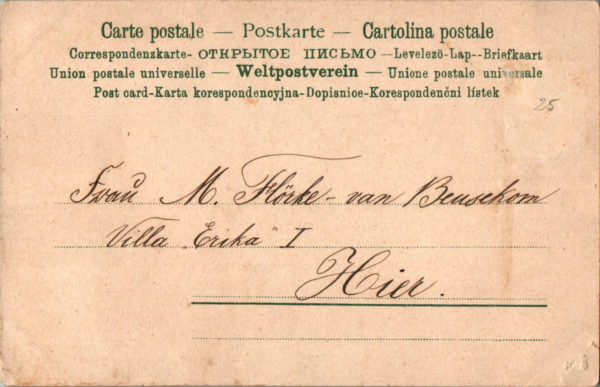 Carte postale — Postkarte — Cartolina postale
Correspondenzkarte- ОТКРЫТОЕ ПИСЬМО —Levelező-Lap--Briefkaart
Union postale universelle — Weltpostverein — Unione postale universale
Post card-Karta korespondencyjna-Dopisnice-Korespondenčni listek
25
Frau M. Flörke-van Beusekom
Villa „Erika“ I
Hier.